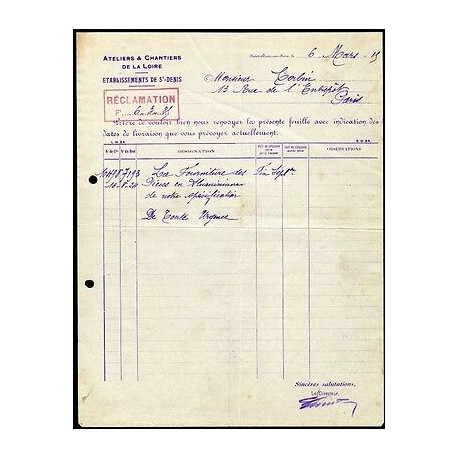 ATELIERS & CHANTIERS
DE LA LOIRE
ETABLISSEMENTS DE St-DENIS
6 Mars
Monsieur Corbin
13 Rue de l'Entrepôt
Paris
RÉCLAMATION
Prière de vouloir bien nous renvoyer la présente feuille avec indication des
dates de livraison que vous prévoyez actuellement.
DÉSIGNATION
OBSERVATIONS
La Fourniture des Fin Septbre
Pièces en Aluminium
de notre spécification
De Toute Urgence
Sincères salutations,
Le Directeur,